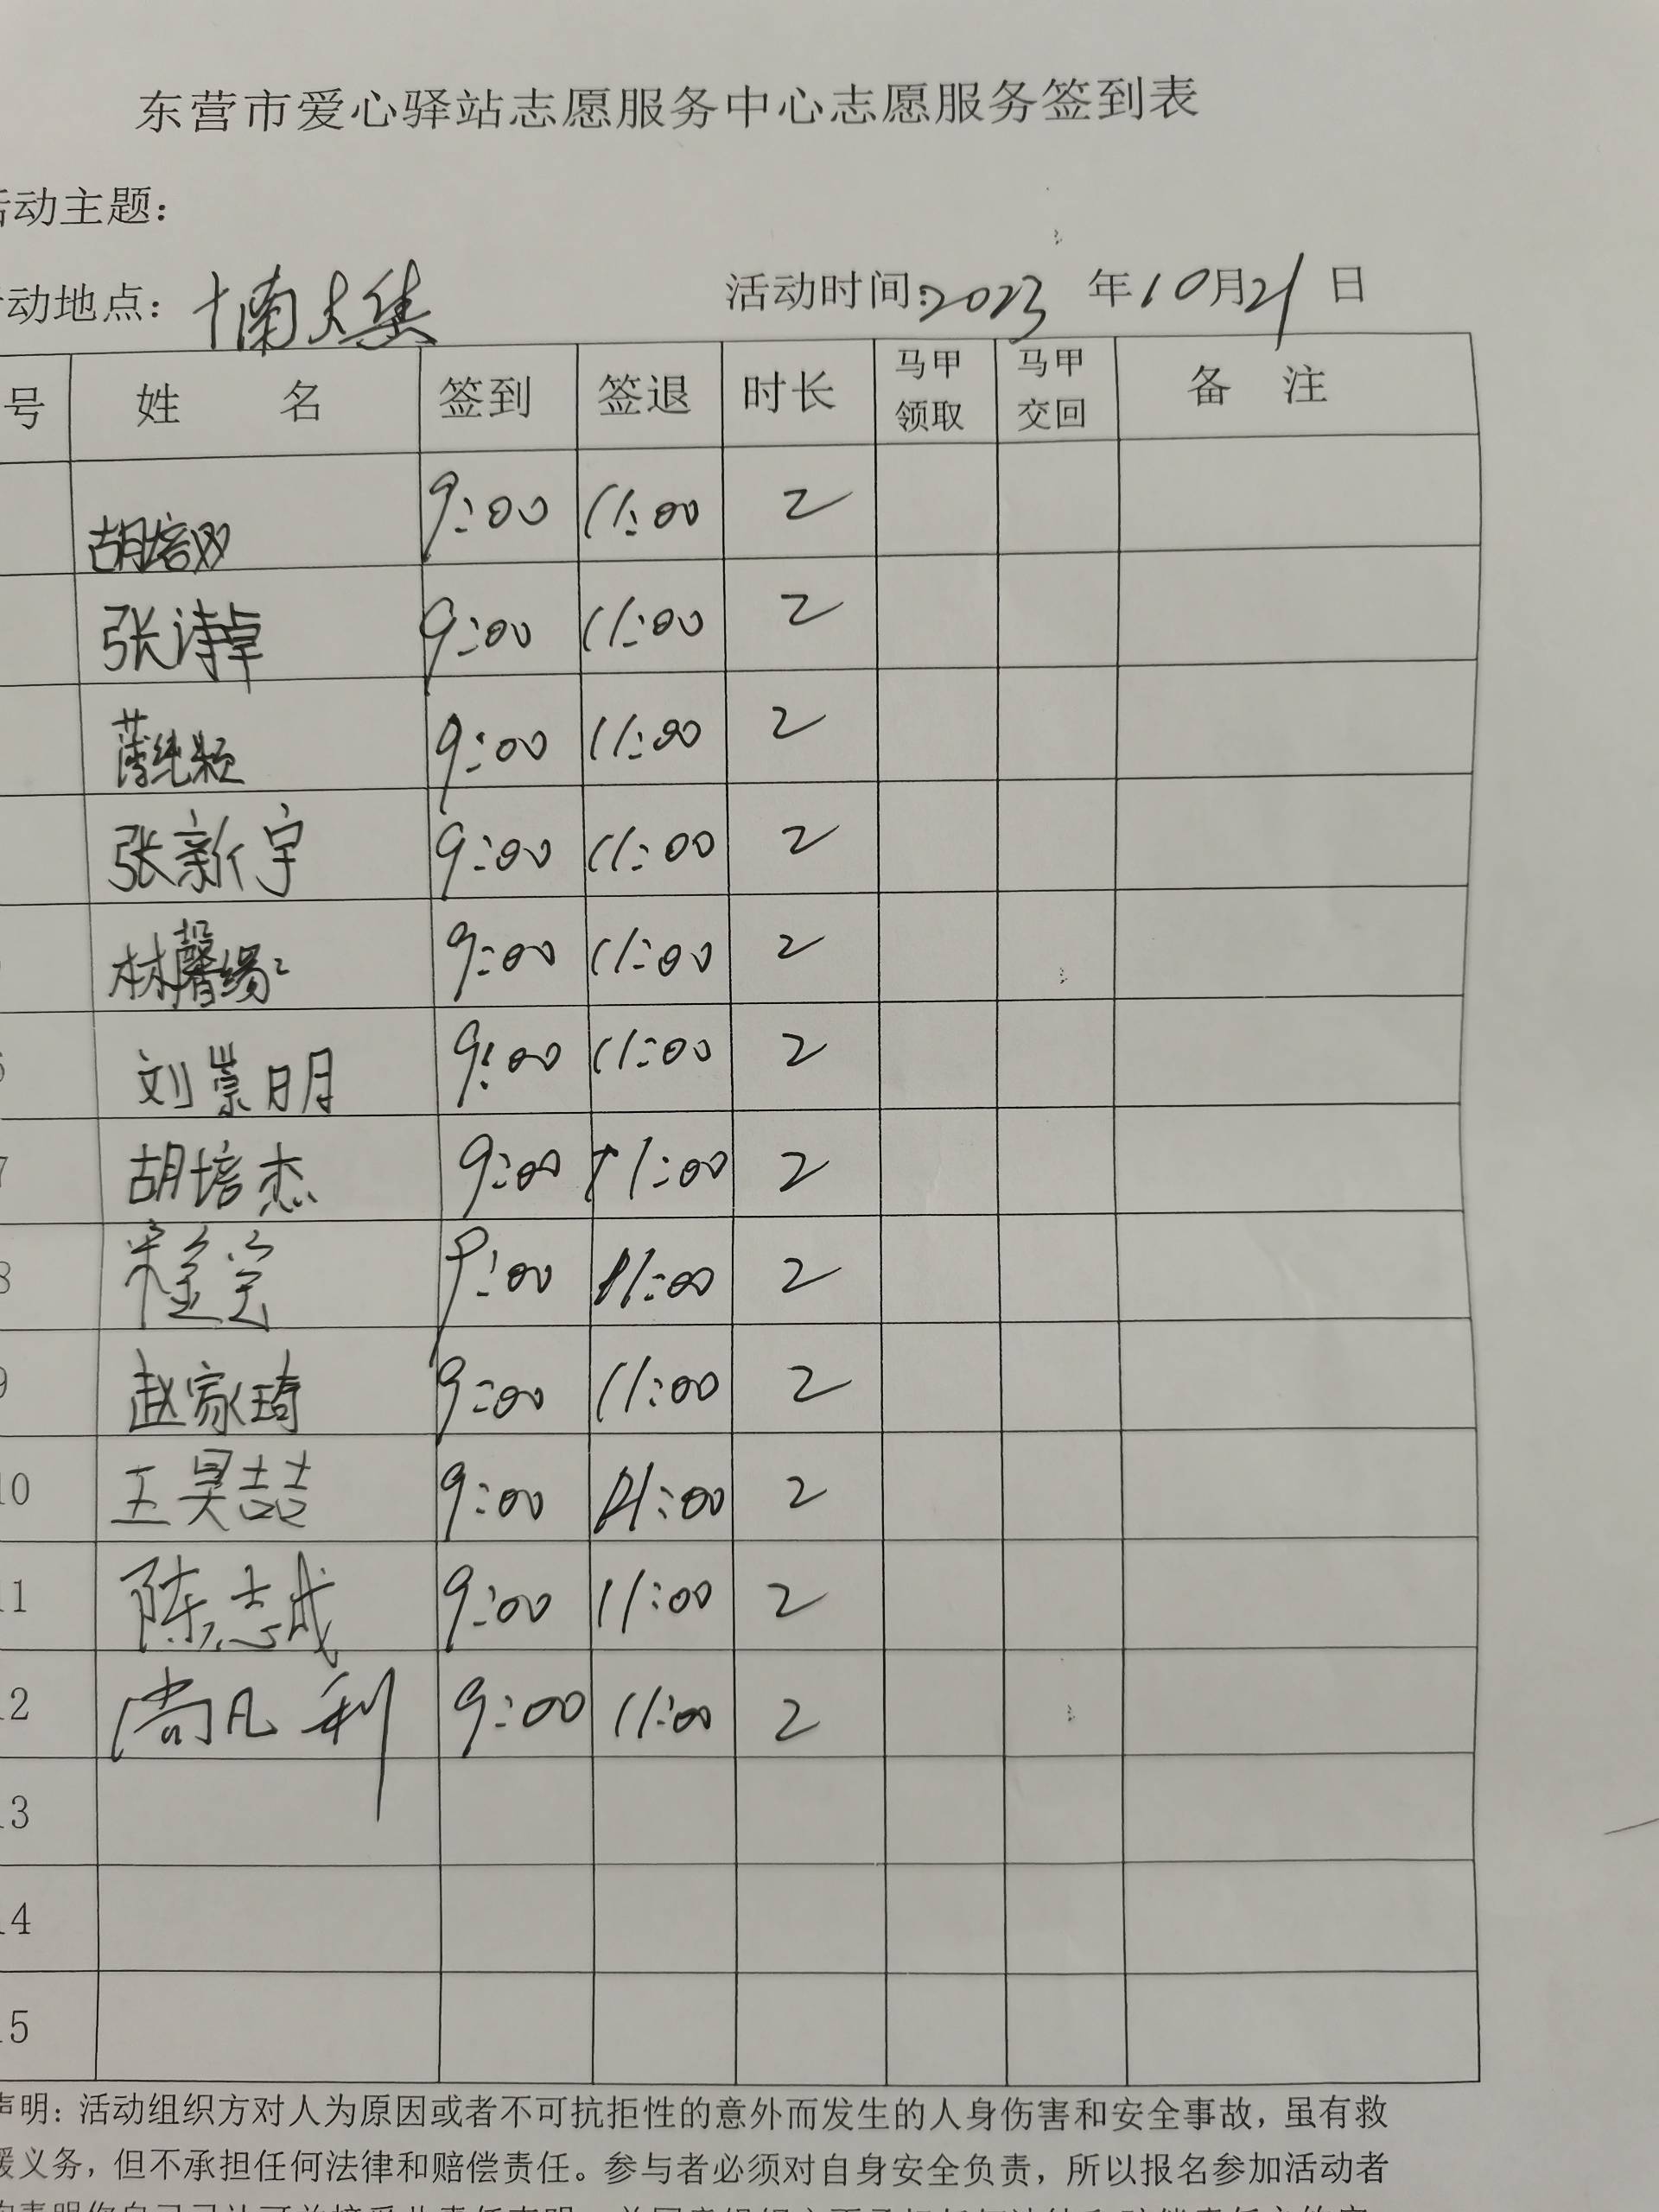 东营市爱心驿站志愿服务中心志愿服务签到表
活动主题：
活动地点： 活动时间：2023 年10月21日
号 姓 名 签到 签退 时长 马甲领取 马甲交回 备 注
胡培双 9:00 11:00 2
张诗卓 9:00 11:00 2
薄纯颖 9:00 11:00 2
张新宇 9:00 11:00 2
林馨 9:00 11:00 2
6 刘崇明 9:00 11:00 2
7 胡培杰 9:00 11:00 2
8 9:00 11:00 2
9 赵家琦 9:00 11:00 2
10 王昊喆 9:00 11:00 2
11 陈志成 9:00 11:00 2
12 尚凡利 9:00 11:00 2
13
14
15
声明：活动组织方对人为原因或者不可抗拒性的意外而发生的人身伤害和安全事故，虽有救
援义务，但不承担任何法律和赔偿责任。参与者必须对自身安全负责，所以报名参加活动者